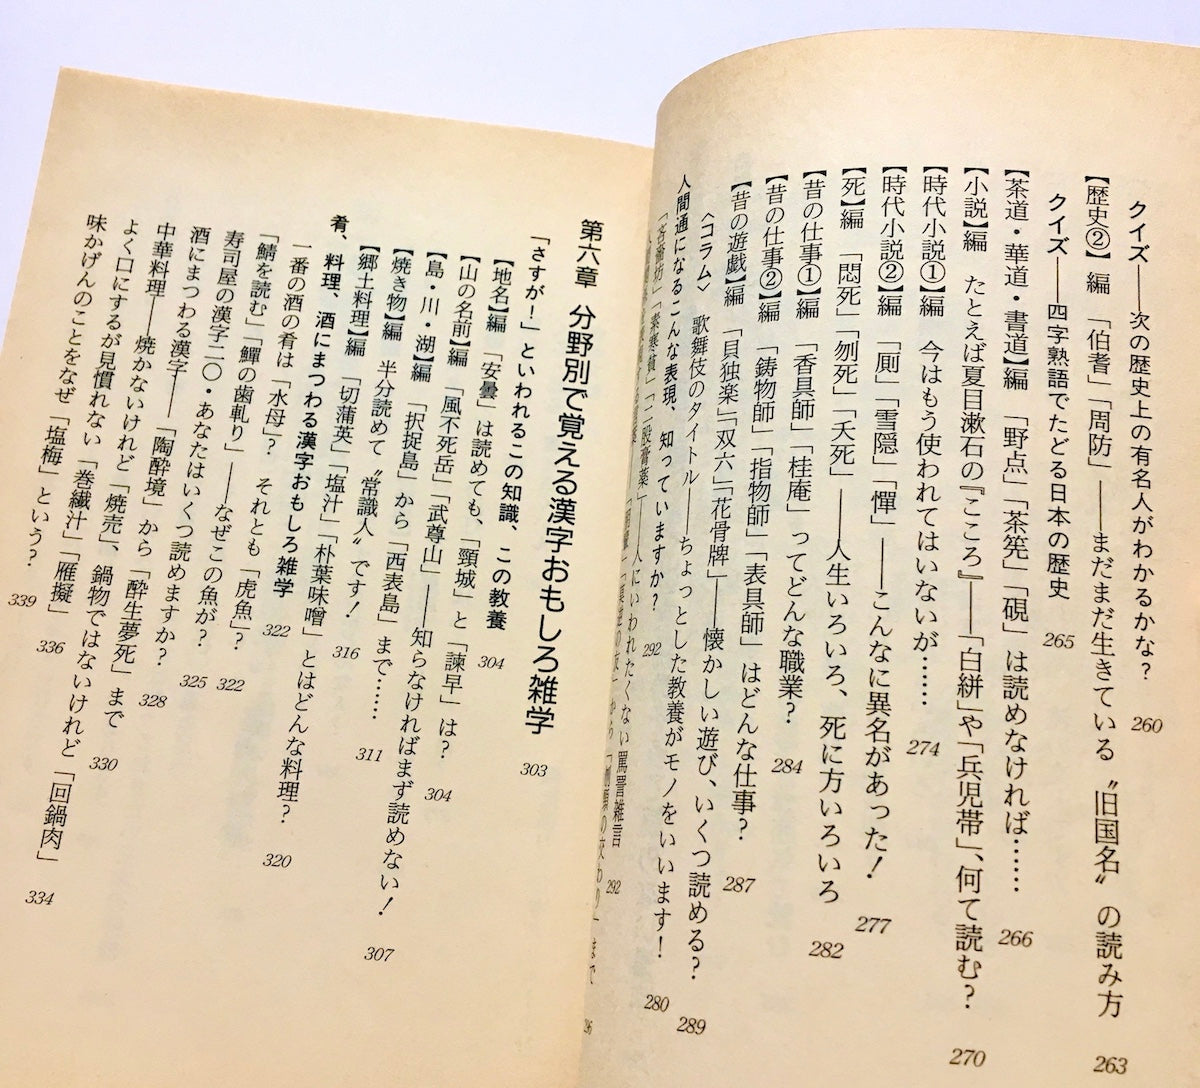 クイズ――次の歴史上の有名人がわかるかな? 260
【歴史②】編 「伯耆」「周防」――まだまだ生きている〝旧国名〟の読み方 263
クイズ――四字熟語でたどる日本の歴史 265
【茶道・華道・書道】編 「野点」「茶筅」「硯」は読めなければ…… 266
【小説】編 たとえば夏目漱石の『こころ』――「白絣」や「兵児帯」、何て読む? 270
【時代小説①】編 今はもう使われてはいないが…… 274
【時代小説②】編 「厠」「雪隠」「憚」――こんなに異名があった! 277
【死】編 「悶死」「刎死」「夭死」――人生いろいろ、死に方いろいろ 282
【昔の仕事①】編 「香具師」「桂庵」ってどんな職業? 284
【昔の仕事②】編 「鋳物師」「指物師」「表具師」はどんな仕事? 287
【昔の遊戯】編 「貝独楽」「双六」「花骨牌」――懐かしい遊び、いくつ読める? 289
〈コラム〉 歌舞伎のタイトル――ちょっとした教養がモノをいいます! 280
人間通になるこんな表現、知っていますか? 292
「素寒貧」「二股膏薬」――人にいわれたくない罵詈雑言 292
第六章 分野別で覚える漢字おもしろ雑学 303
「さすが!」といわれるこの知識、この教養 304
【地名】編 「安曇」は読めても、「頸城」と「諫早」は? 304
【山の名前】編 「風不死岳」「武尊山」――知らなければまず読めない! 307
【島・川・湖】編 「択捉島」から「西表島」まで…… 311
【焼き物】編 半分読めて〝常識人〟です! 316
【郷土料理】編 「切蒲英」「塩汁」「朴葉味噌」とはどんな料理? 320
肴、料理、酒にまつわる漢字おもしろ雑学 322
一番の酒の肴は「水母」? それとも「虎魚」? 322
「鯖を読む」「鱓の歯軋り」――なぜこの魚が? 325
寿司屋の漢字二〇・あなたはいくつ読めますか? 328
酒にまつわる漢字――「陶酔境」から「酔生夢死」まで 330
中華料理――焼かないけれど「焼売」、鍋物ではないけれど「回鍋肉」 334
よく口にするが見慣れない「巻繊汁」「雁擬」 336
味かげんのことをなぜ「塩梅」という? 339